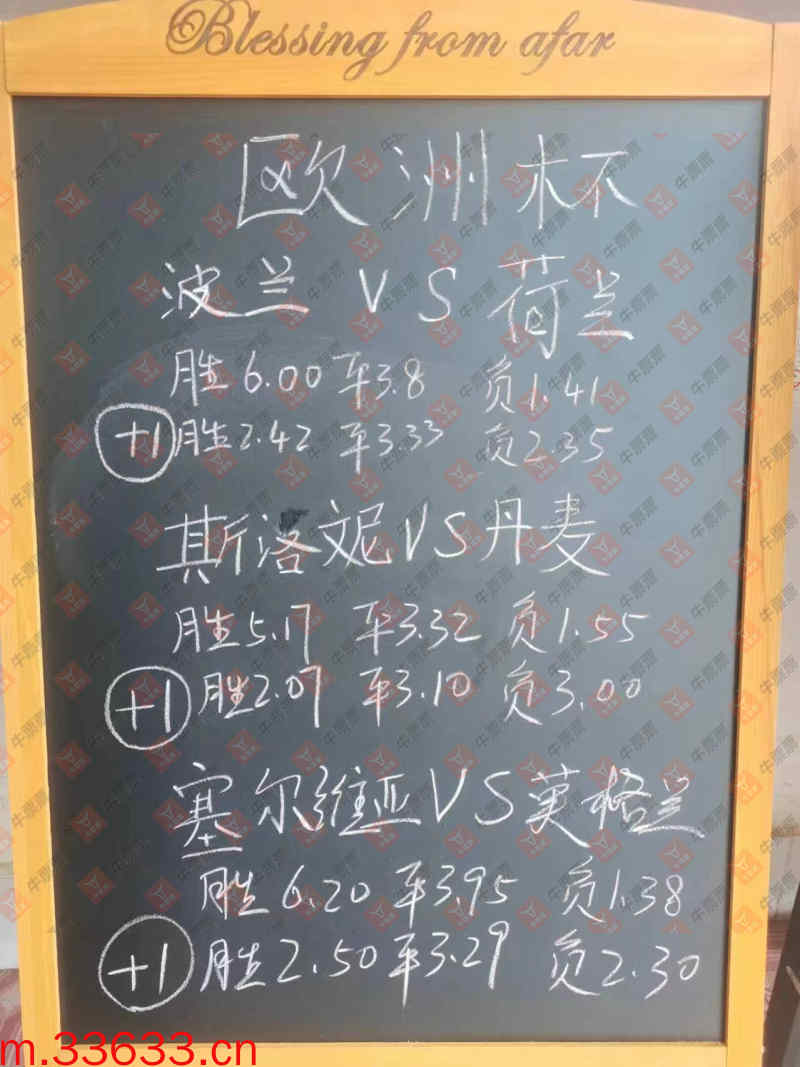 Blessing from afar
欧洲杯
波兰 VS 荷兰
胜6.00 平3.8 负1.41
+1 胜2.42 平3.33 负2.35
斯洛文尼VS丹麦
胜5.17 平3.32 负1.55
+1 胜2.07 平3.10 负3.00
塞尔维亚VS英格兰
胜6.20 平3.95 负1.38
+1 胜2.50 平3.29 负2.30
m.33633.cn